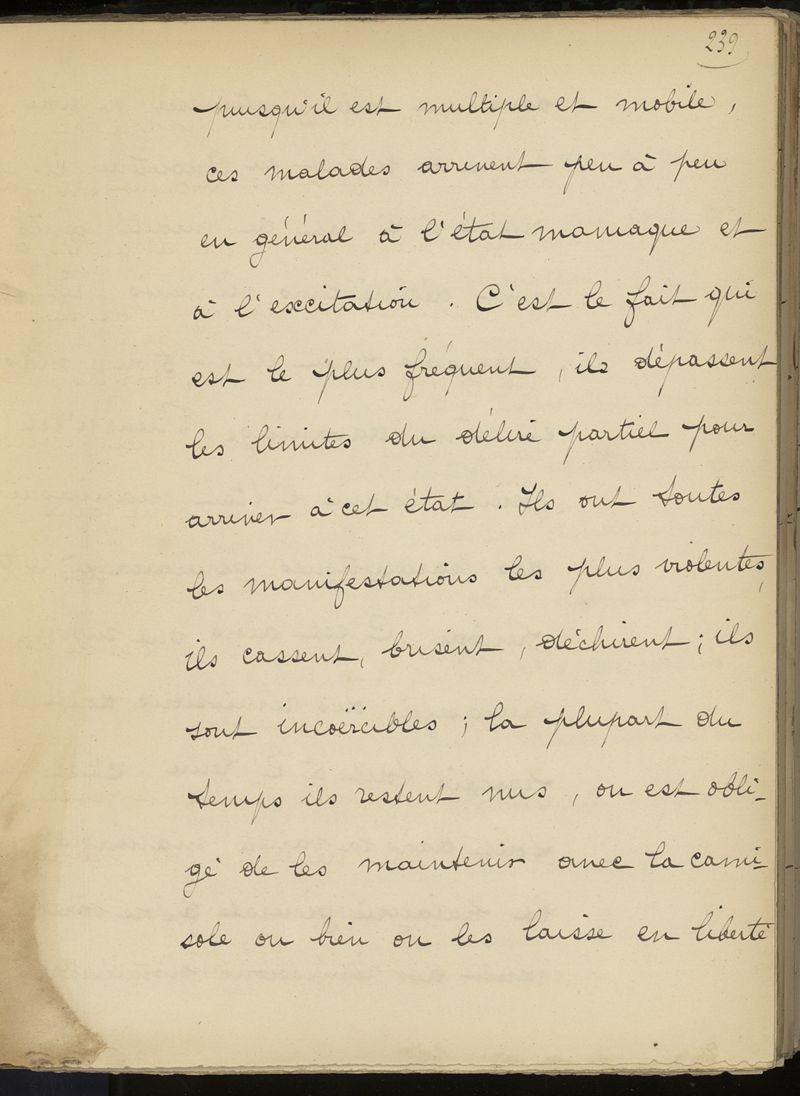 239
puisqu'il est multiple et mobile,
ces malades arrivent peu à peu
en général à l'état maniaque et
à l'excitation. C'est le fait qui
est le plus fréquent, ils dépassent
les limites du délire partiel pour
arriver à cet état. Ils ont toutes
les manifestations les plus violentes,
ils cassent, brisent, déchirent; ils
sont incoërcibles; la plupart du
temps ils restent nus, on est obli-
gé de les maintenir avec la cami-
sole ou bien on les laisse en liberté